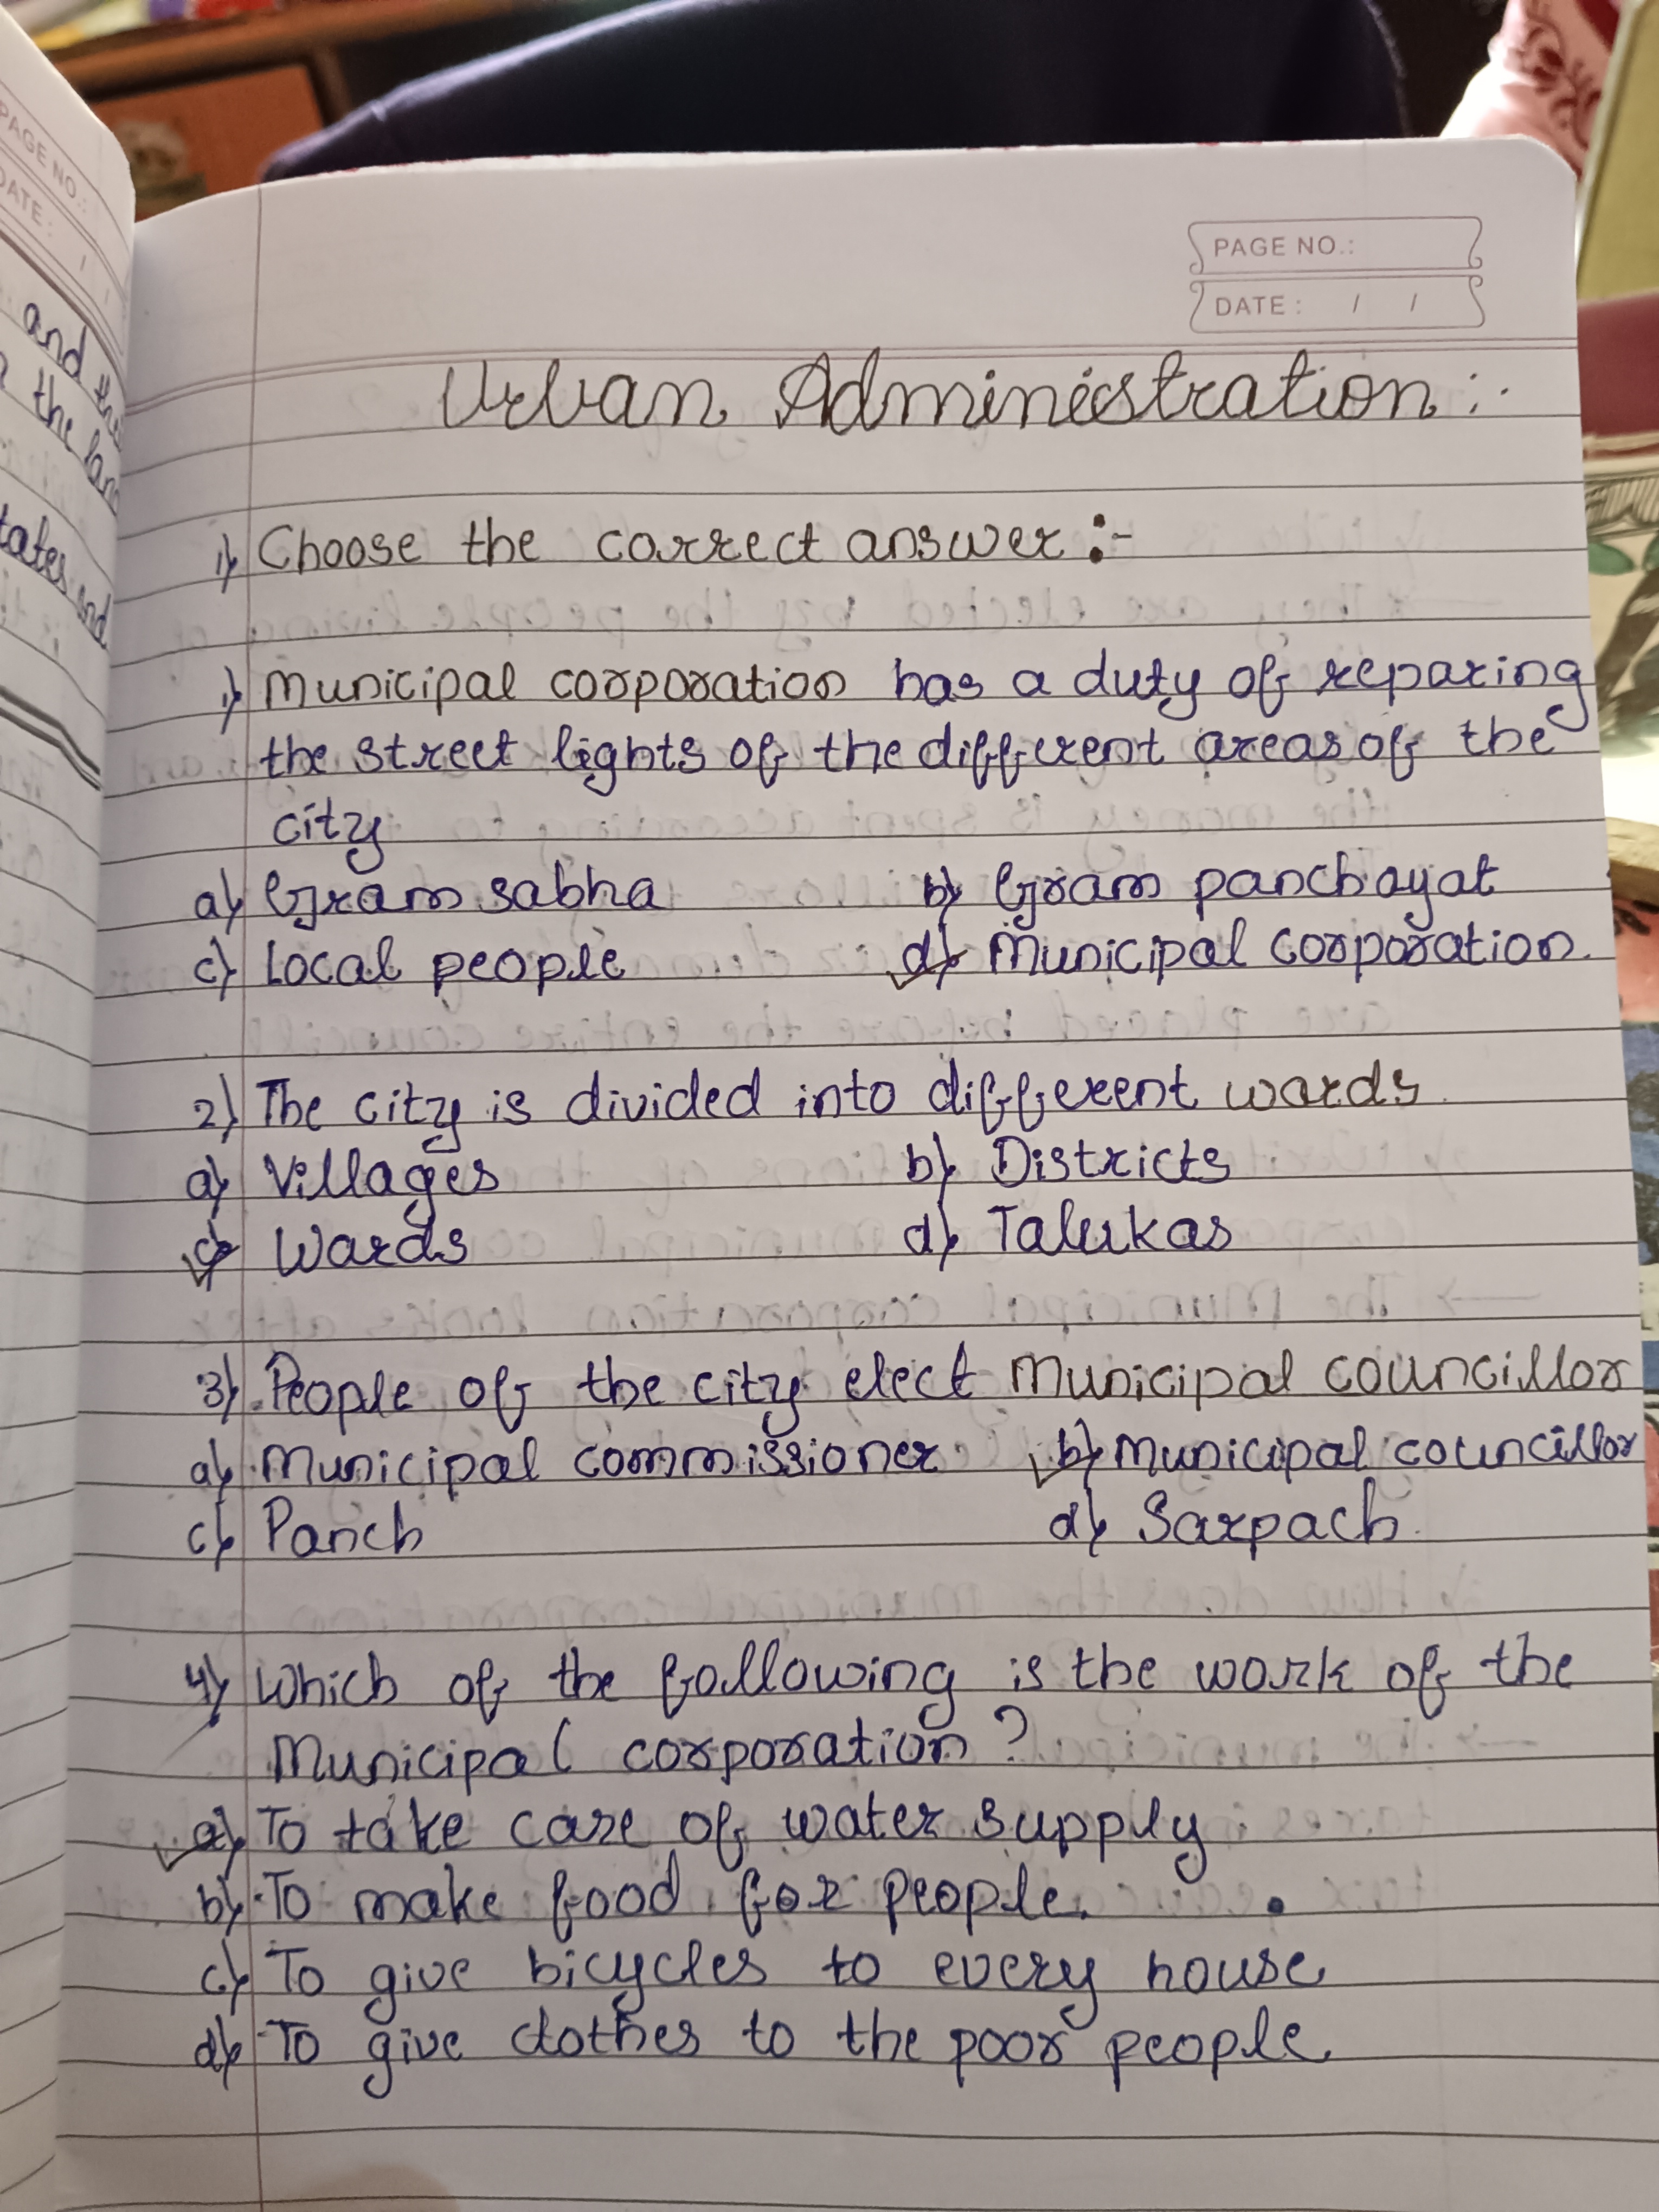 PAGE NO.:
DATE: / /
PAGE NO.:
DATE: / /
and the
the lan
tates and
Urban Administration :-
1) Choose the correct answer :-
1) Municipal corporation has a duty of reparing
the street lights of the different areas of the
city
a) Gram sabha b) Gram panchayat
c) Local people d) Municipal corporation.
2) The city is divided into different wards.
a) Villages b) Districts
c) Wards d) Talukas
3) People of the city elect Municipal councillor
a) Municipal commissioner b) Municipal councillor
c) Panch d) Sarpach.
4) Which of the following is the work of the
Municipal corporation?
a) To take care of water supply
b) To make food for people.
c) To give bicycles to every house
d) To give clothes to the poor people